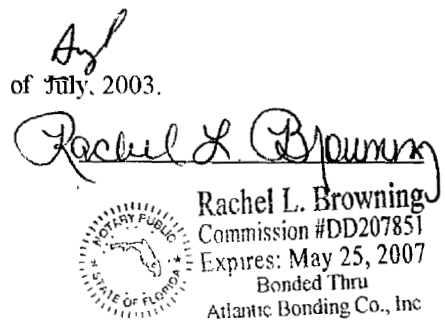 Aug
of July, 2003.
Rachel L. Browning
Rachel L. Browning
Commission #DD207851
Expires: May 25, 2007
Bonded Thru
Atlantic Bonding Co., Inc
NOTARY PUBLIC
STATE OF FLORIDA